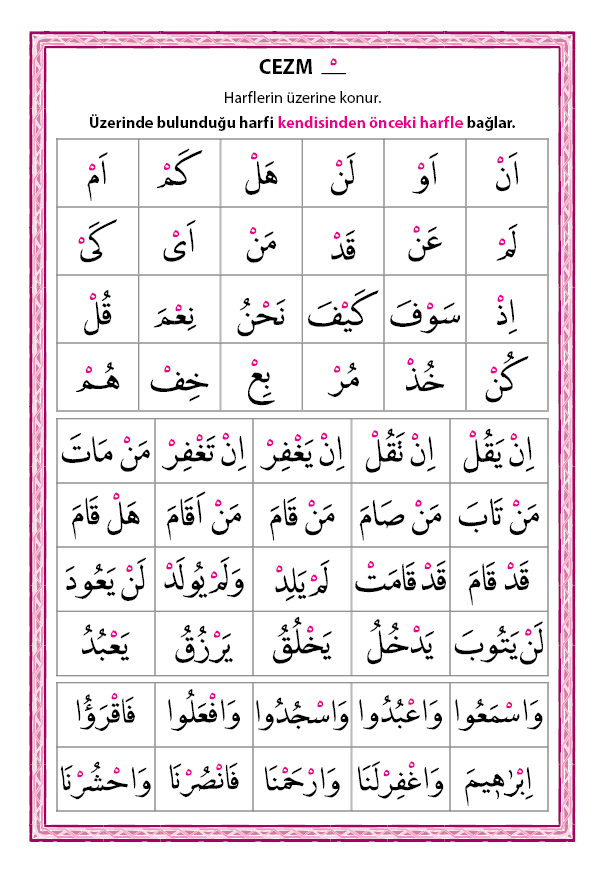 CEZM ـْ
Harflerin üzerine konur.
Üzerinde bulunduğu harfi kendisinden önceki harfle bağlar.
اَنْ اَوْ لَنْ هَلْ كَمْ اَمْ
لَمْ عَنْ قَدْ مَنْ اَىْ كَىْ
اِذْ سَوْفَ كَيْفَ نَحْنُ نِعْمَ قُلْ
كُنْ خُذْ مُرْ بِعْ خِفْ هُمْ
اِنْ يَقُلْ اِنْ نَقُلْ اِنْ يَغْفِرْ اِنْ تَغْفِرْ مَنْ مَاتَ
مَنْ تَابَ مَنْ صَامَ مَنْ قَامَ مَنْ اَقَامَ هَلْ قَامَ
قَدْ قَامَ قَدْ قَامَتْ لَمْ يَلِدْ وَلَمْ يُولَدْ لَنْ يَعُودَ
لَنْ يَتُوبَ يَدْخُلُ يَخْلُقُ يَرْزُقُ يَعْبُدُ
وَاسْمَعُوا وَاعْبُدُوا وَاسْجُدُوا وَافْعَلُوا فَاقْرَؤُا
اِبْرٰهٖيمَ وَاغْفِرْلَنَا وَارْحَمْنَا فَانْصُرْنَا وَاحْشُرْنَا